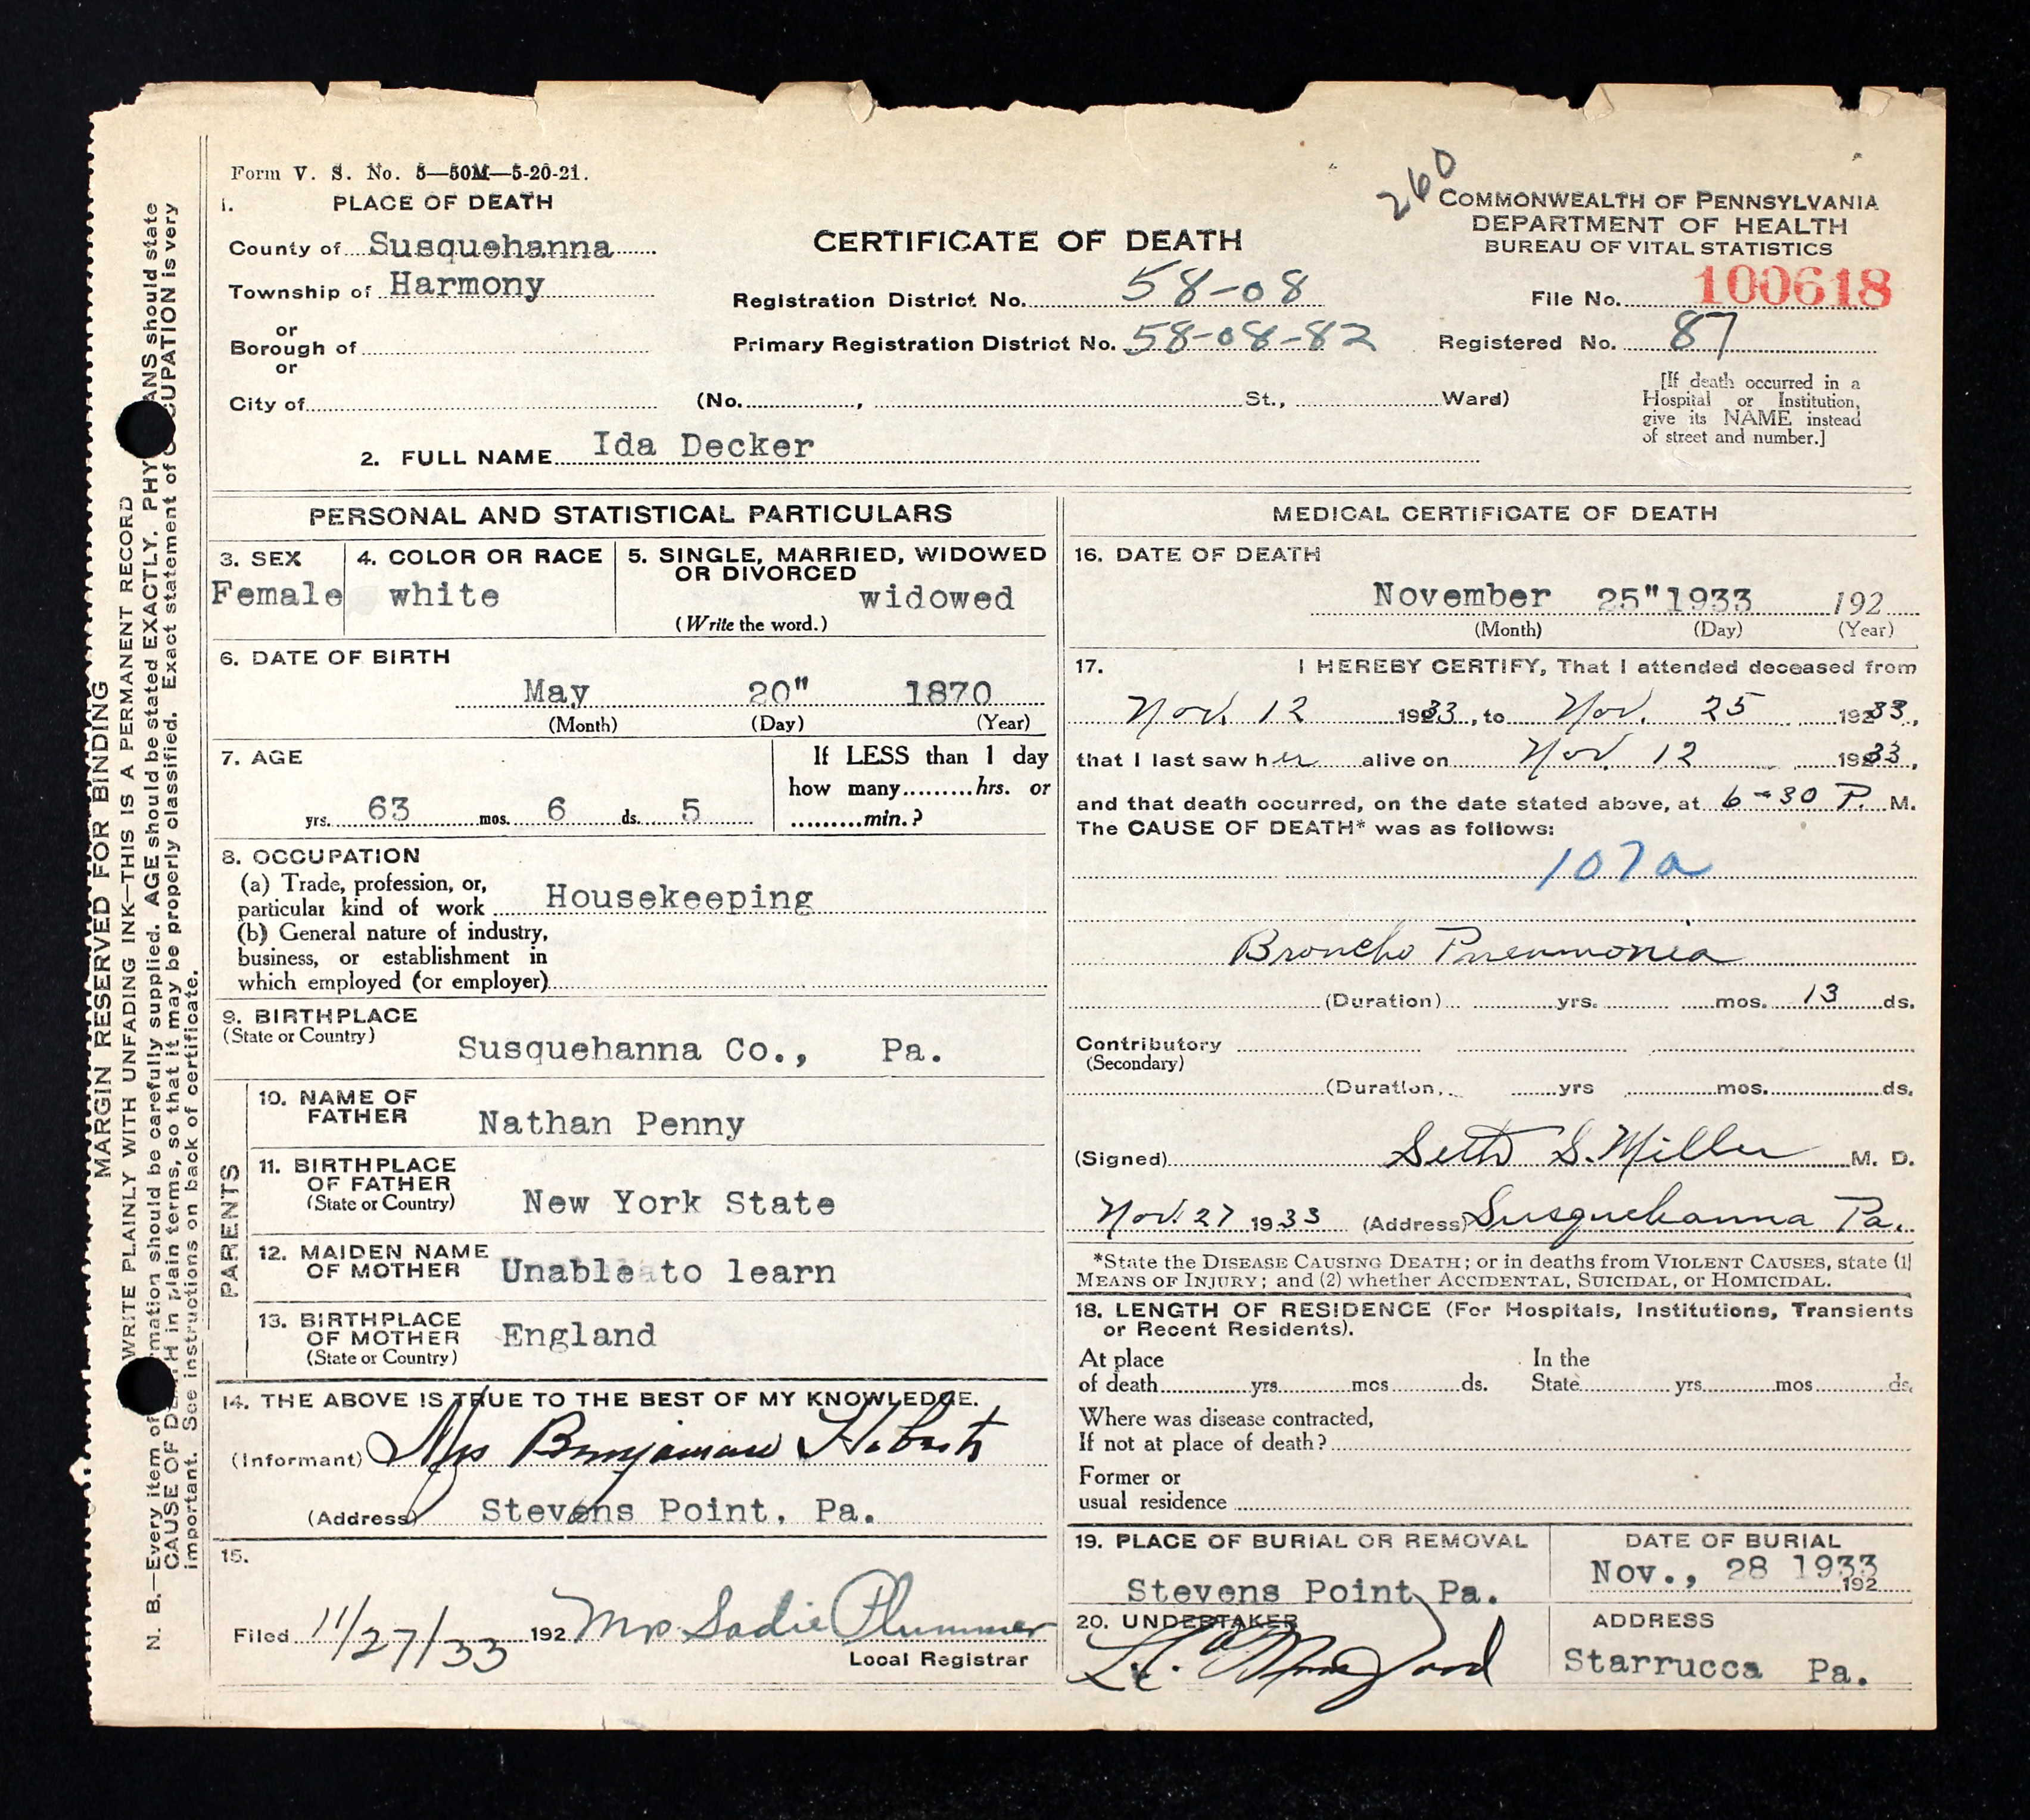 Form V. S. No. 5—50M—5-20-21.
1. PLACE OF DEATH
County of Susquehanna
Township of Harmony
or
Borough of
or
City of
CERTIFICATE OF DEATH
Registration District No. 58-08
Primary Registration District No. 58-08-82
(No. , St., Ward)
260
COMMONWEALTH OF PENNSYLVANIA
DEPARTMENT OF HEALTH
BUREAU OF VITAL STATISTICS
File No. 100618
Registered No. 87
[If death occurred in a
Hospital or Institution,
give its NAME instead
of street and number.]
2. FULL NAME Ida Decker
PERSONAL AND STATISTICAL PARTICULARS
3. SEX
Female
4. COLOR OR RACE
white
5. SINGLE, MARRIED, WIDOWED
OR DIVORCED
widowed
(Write the word.)
6. DATE OF BIRTH
May 20" 1870
(Month) (Day) (Year)
7. AGE
yrs. 63 mos. 6 ds. 5
If LESS than 1 day
how many hrs. or
min.?
8. OCCUPATION
(a) Trade, profession, or,
particular kind of work Housekeeping
(b) General nature of industry,
business, or establishment in
which employed (or employer)
9. BIRTHPLACE
(State or Country)
Susquehanna Co., Pa.
PARENTS
10. NAME OF
FATHER
Nathan Penny
11. BIRTHPLACE
OF FATHER
(State or Country)
New York State
12. MAIDEN NAME
OF MOTHER
Unable to learn
13. BIRTHPLACE
OF MOTHER
(State or Country)
England
14. THE ABOVE IS TRUE TO THE BEST OF MY KNOWLEDGE.
(Informant) Mrs Benjamin
(Address) Stevens Point, Pa.
15.
Filed 11/27/33 192 Mrs. Sadie Plummer
Local Registrar
MEDICAL CERTIFICATE OF DEATH
16. DATE OF DEATH
November 25" 1933 192
(Month) (Day) (Year)
17. I HEREBY CERTIFY, That I attended deceased from
Nov. 12 1933, to Nov. 25 1933,
that I last saw her alive on Nov. 12 1933,
and that death occurred, on the date stated above, at 6-30 P. M.
The CAUSE OF DEATH* was as follows:
107a
Broncho Pneumonia
(Duration) yrs. mos. 13 ds.
Contributory
(Secondary)
(Duration, yrs mos. ds.
(Signed) Seth S. Miller M. D.
Nov. 27 1933 (Address) Susquehanna Pa.
*State the DISEASE CAUSING DEATH; or in deaths from VIOLENT CAUSES, state (1)
MEANS OF INJURY; and (2) whether ACCIDENTAL, SUICIDAL, or HOMICIDAL.
18. LENGTH OF RESIDENCE (For Hospitals, Institutions, Transients
or Recent Residents).
At place
of death yrs mos ds.
In the
State yrs mos ds.
Where was disease contracted,
If not at place of death?
Former or
usual residence
19. PLACE OF BURIAL OR REMOVAL
Stevens Point Pa.
DATE OF BURIAL
Nov., 28 1933
192
20. UNDERTAKER
ADDRESS
Starrucca Pa.
MARGIN RESERVED FOR BINDING
WRITE PLAINLY WITH UNFADING INK—THIS IS A PERMANENT RECORD
N. B.—Every item of should be carefully supplied. AGE should be stated EXACTLY. should state
CAUSE OF in plain terms, so that it may be properly classified. Exact statement of is very
important. See instructions on back of certificate.